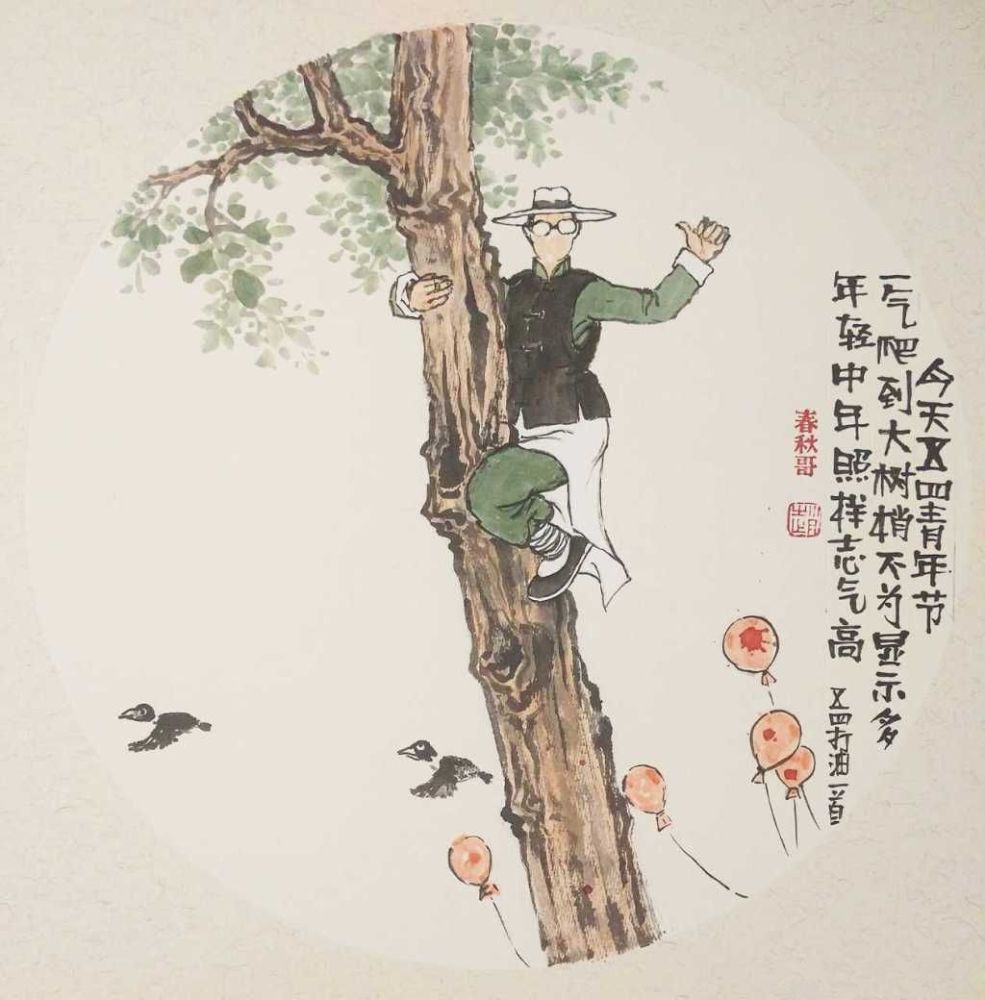 今天五四青年节
一气爬到大树梢不为显示多
年轻中年照样志气高
五四打油一首
春秋哥